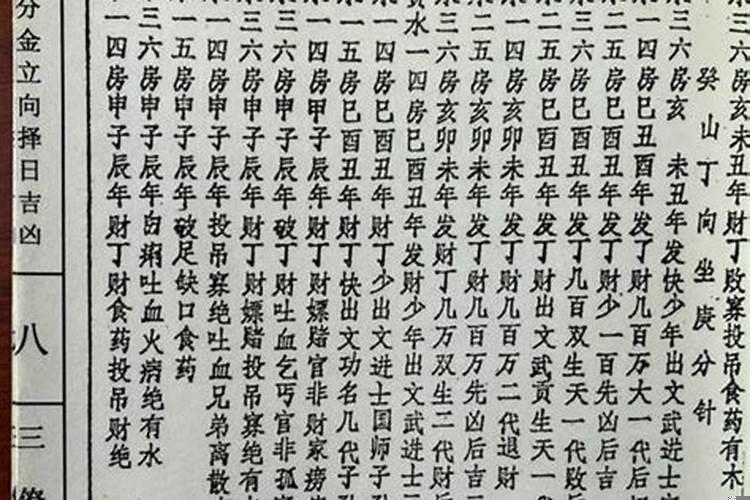 三六房亥未丑年财丁败寡投吊食药有木
癸山丁向坐庚分针
水三六房亥 未丑年发快少年出文武进士
一四房巳丑酉年发丁财几百万大一代后
二五房巳酉丑年发丁财少一百先凶后吉
三六房巳酉丑年发丁几百双生天一代败后
二五房巳酉丑年发丁财出文武贡生天一
一四房亥卯未年发丁财几百万二代退财
二五房亥卯未年发丁财几百万先凶后吉
三六房亥卯未年发财丁几万双生二代财后
水一四房巳酉丑年发财少年出文武进士
一四房巳酉丑年财丁少出文进士国师子
一五房巳酉丑年财丁快出文功名几代子
一四房甲子辰年财丁财嫖赌官非财家痨
三六房申子辰年破丁财吐血乞丐官非孤
三六房申子辰年财丁财嫖赌投吊寡绝有
一四房申子辰年投吊寡绝吐血兄弟离散
一五房申子辰年破足缺口食药
三六房申子辰年白痢吐血火病绝有水
一四房申子辰年财丁财食药投吊财绝
分金立向择日吉凶
八
三